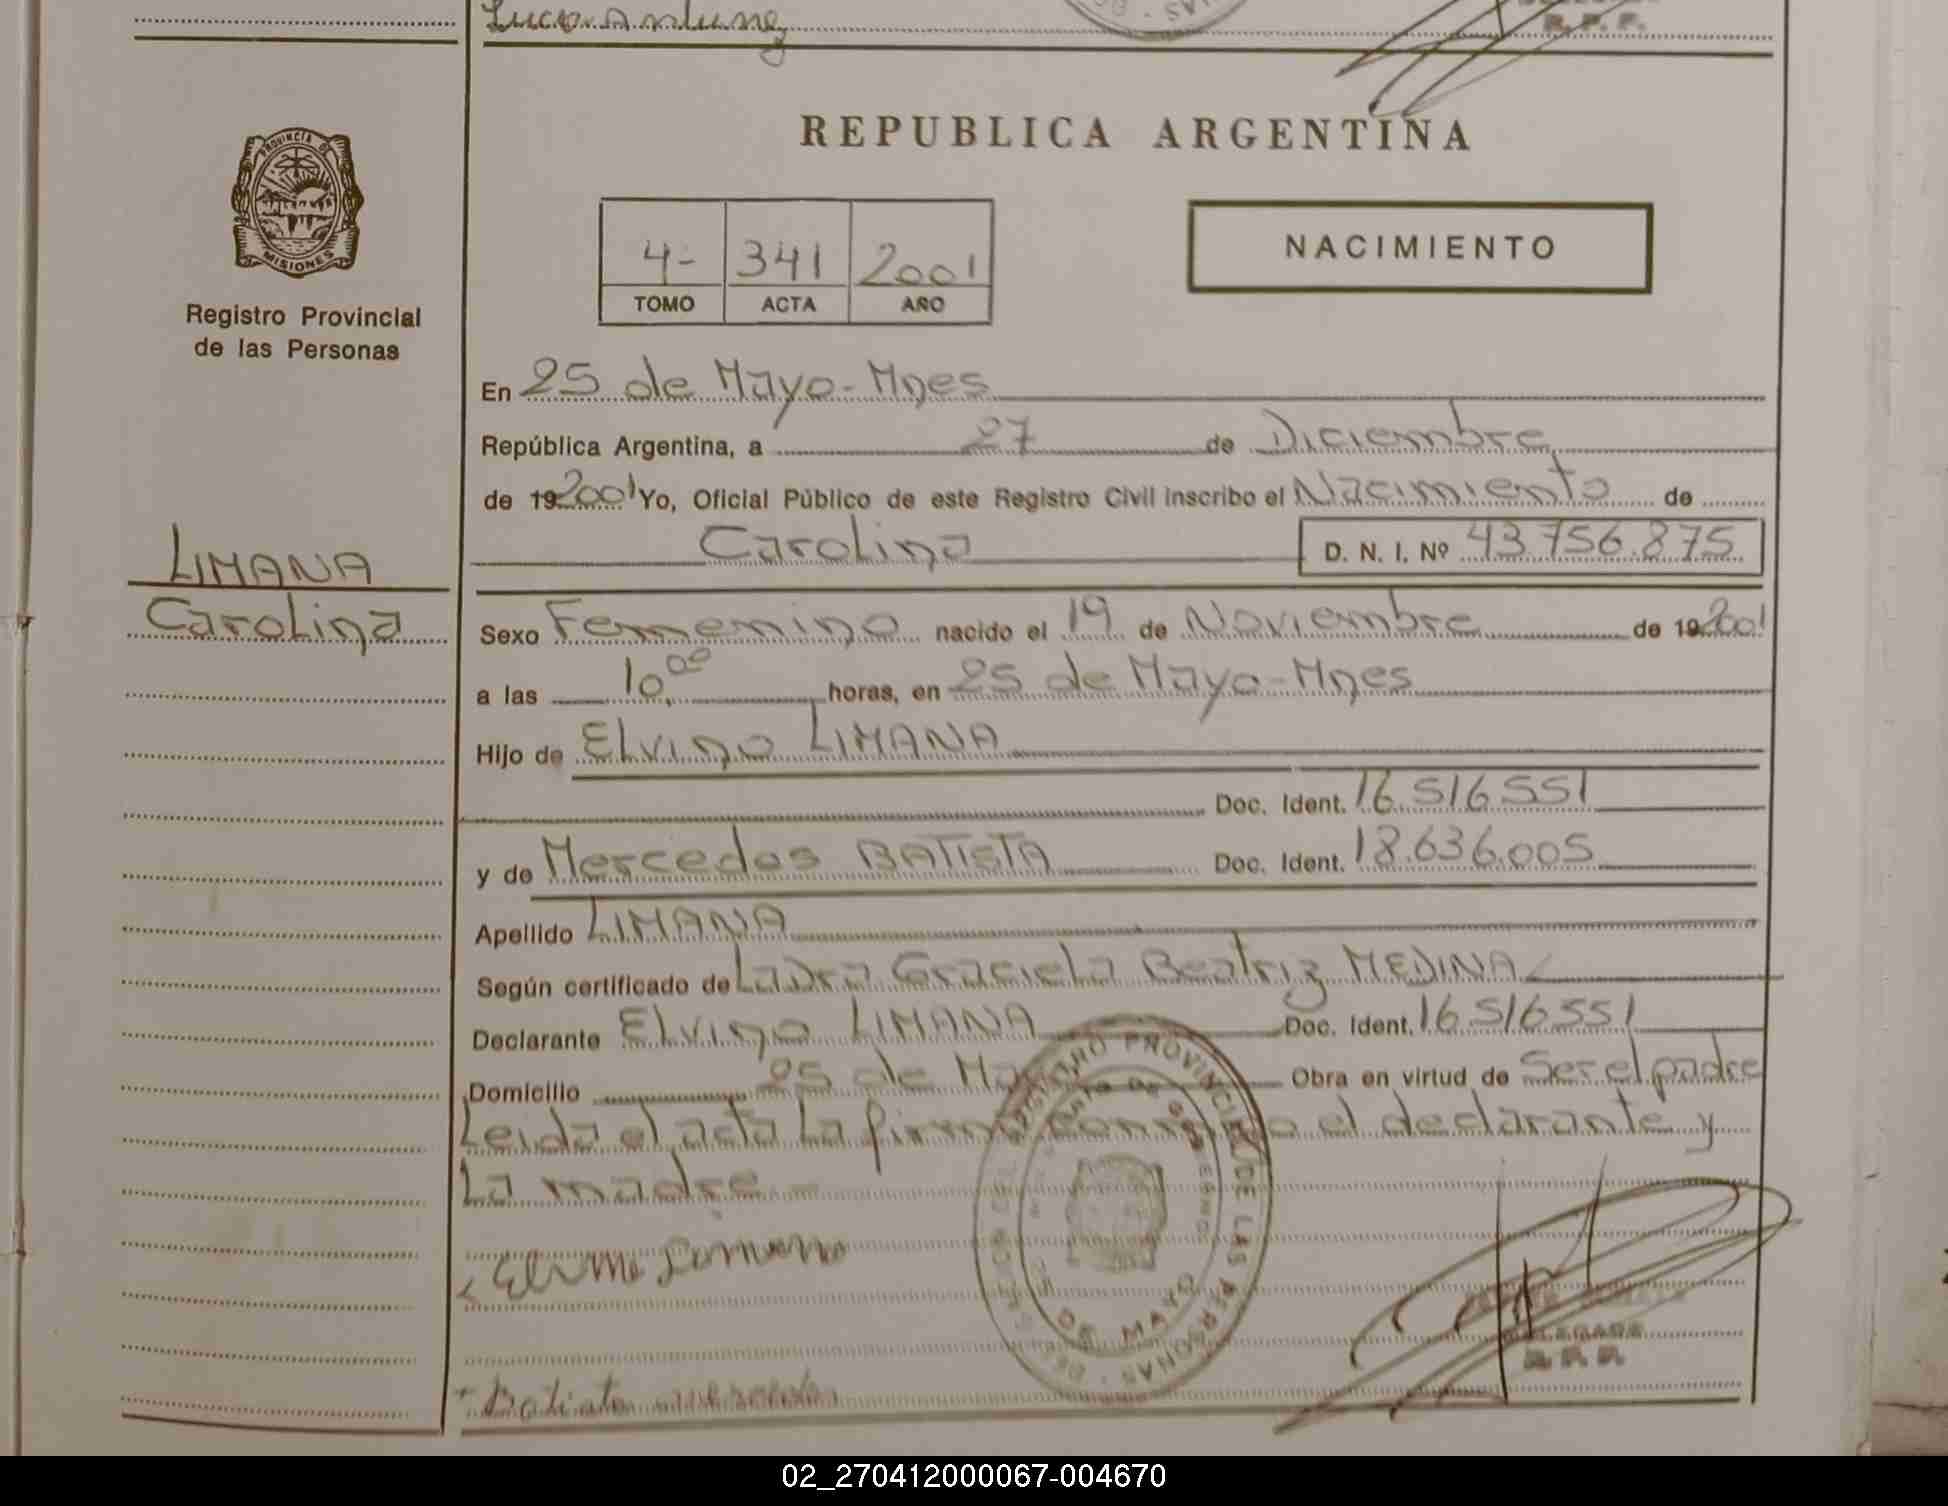 REPUBLICA ARGENTINA
PROVINCIA DE
MISIONES
Registro Provincial
de las Personas
4- 341 2001
TOMO ACTA AÑO
NACIMIENTO
En 25 de Mayo-Mnes
República Argentina, a 27 de Diciembre
de 19 2001 Yo, Oficial Público de este Registro Civil inscribo el Nacimiento de
Carolina D. N. I. Nº 43.756.875
LIMANA
Carolina
Sexo Femenino nacido el 19 de Noviembre de 19 2001
a las 10,00 horas, en 25 de Mayo-Mnes
Hijo de Elvino LIMANA
Doc. Ident. 16.516.551
y de Mercedes BATISTA Doc. Ident. 18.636.005
Apellido LIMANA
Según certificado de La Dra Graciela Beatriz MEDINA
Declarante Elvino LIMANA Doc. Ident. 16.516.551
Domicilio 25 de Mayo Obra en virtud de Ser el padre
Leida el acta la firma conmigo el declarante y
La madre -
REGISTRO PROVINCIAL DE LAS PERSONAS
DE MAYO
Batista
R. P. P.
02_270412000067-004670